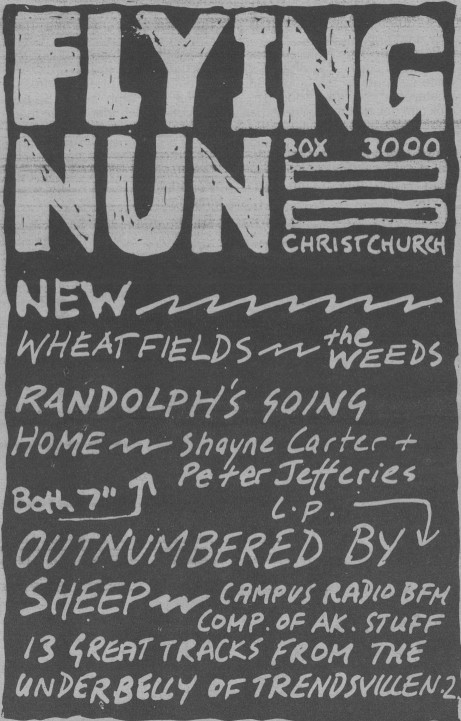 FLYING
NUN
BOX 3000
CHRISTCHURCH
NEW
WHEATFIELDS the WEEDS
RANDOLPH'S GOING
HOME Shayne Carter +
Peter Jefferies
Both 7"
L.P.
OUTNUMBERED BY
SHEEP CAMPUS RADIO BFM
COMP. OF AK. STUFF
13 GREAT TRACKS FROM THE
UNDERBELLY OF TRENDSVILLE N.Z.